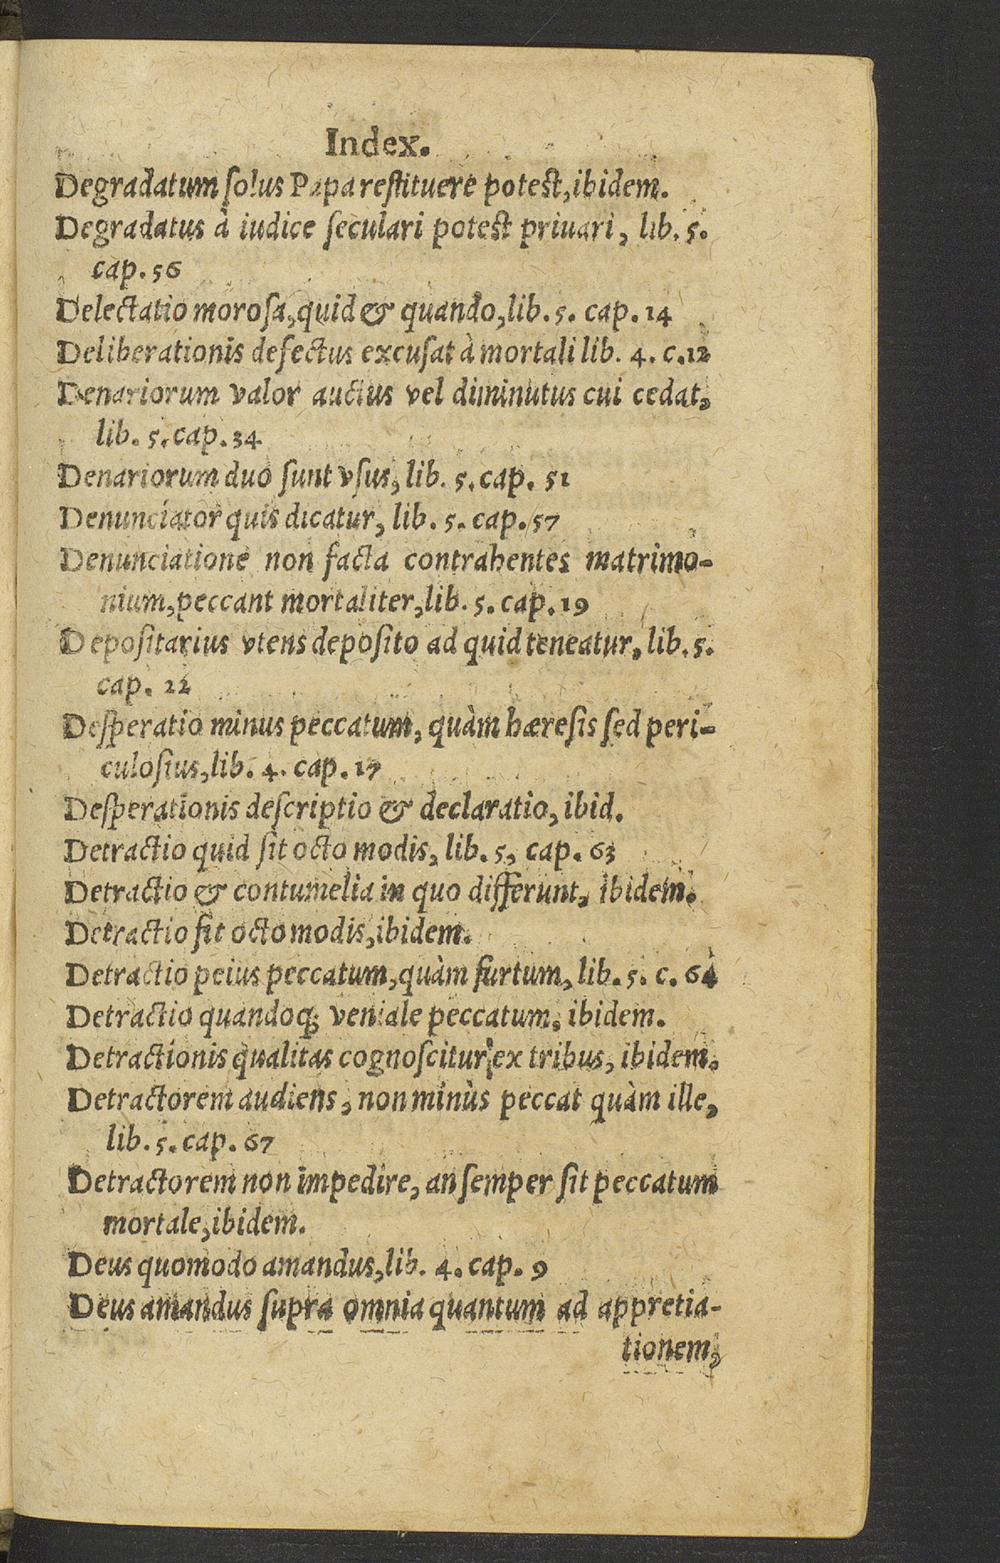 Index.
Degradatum ſolus Papa reſtituere poteſt, ibidem.
Degradatus à iudice ſeculari poteſt priuari, lib. 5.
cap. 56
Delectatio moroſa, quid & quando, lib. 5. cap. 14
Deliberationis defectus excuſat à mortali lib. 4. c. 12
Denariorum valor auctus vel diminutus cui cedat,
lib. 5. cap. 34
Denariorum duo ſunt vſus, lib. 5. cap. 51
Denunciator quis dicatur, lib. 5. cap. 57
Denunciatione non facta contrahentes matrimo-
nium, peccant mortaliter, lib. 5. cap. 19
Depoſitarius vtens depoſito ad quid teneatur, lib. 5.
cap. 22
Deſperatio minus peccatum, quàm hæreſis ſed peri-
culoſius, lib. 4. cap. 17
Deſperationis deſcriptio & declaratio, ibid.
Detractio quid ſit octo modis, lib. 5, cap. 63
Detractio & contumelia in quo differunt, ibidem.
Detractio fit octo modis, ibidem.
Detractio peius peccatum, quàm furtum, lib. 5. c. 64
Detractio quandoq; veniale peccatum, ibidem.
Detractionis qualitas cognoſcitur ex tribus, ibidem.
Detractorem audiens, non minùs peccat quàm ille,
lib. 5. cap. 67
Detractorem non impedire, an ſemper ſit peccatum
mortale, ibidem.
Deus quomodo amandus, lib. 4. cap. 9
Deus amandus ſupra omnia quantum ad appretia-
tionem,